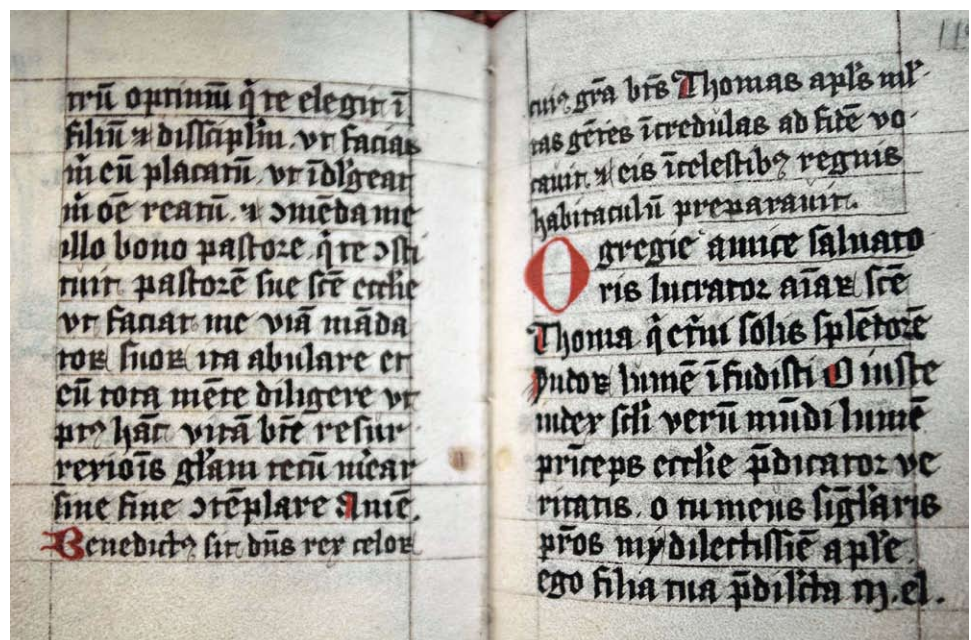 trū optimū q̄ te elegit ī
filiū ⁊ discip̄lm̄. vt facias
m̄ eū placatū. vt īdl̓geat
m̄ oē reatū. ⁊ ↄmēda me
illo bono pastore. q̄ te ↄsti
tuit pastorē sue scē eccl̄ie
vt faciat me viā māda
toꝝ suoꝝ ita abulare et
eū tota mēte diligere vt
ptꝰ hāc vitā btē resur
rexiōis gl̓am tecū m̓ear
sine fine ↄtēplare Amē.
Benedictꝰ sit dn̄s rex celoꝝ
cuiꝰ grā bt̄s Thomas apl̓s ml̓
tas gētes īcredulas ad fidē vo
cauit. ⁊ eis ī celestibꝰ regnis
habitaculū preparauit.
O gregie amice saluato
ris lucrator aīaꝝ scē
Thoma q̄ cet̓ni solis splētorē
Indoꝝ lumē īfudisti O iuste
iudex scl̓i verū mūdi lumē
prīceps eccl̄ie p̄dicator ve
ritatis. o tu meus sīgl̓aris
pr̄os my dilectissiē aplē
ego filia tua p̄dil̓cta ɱ. el.
115